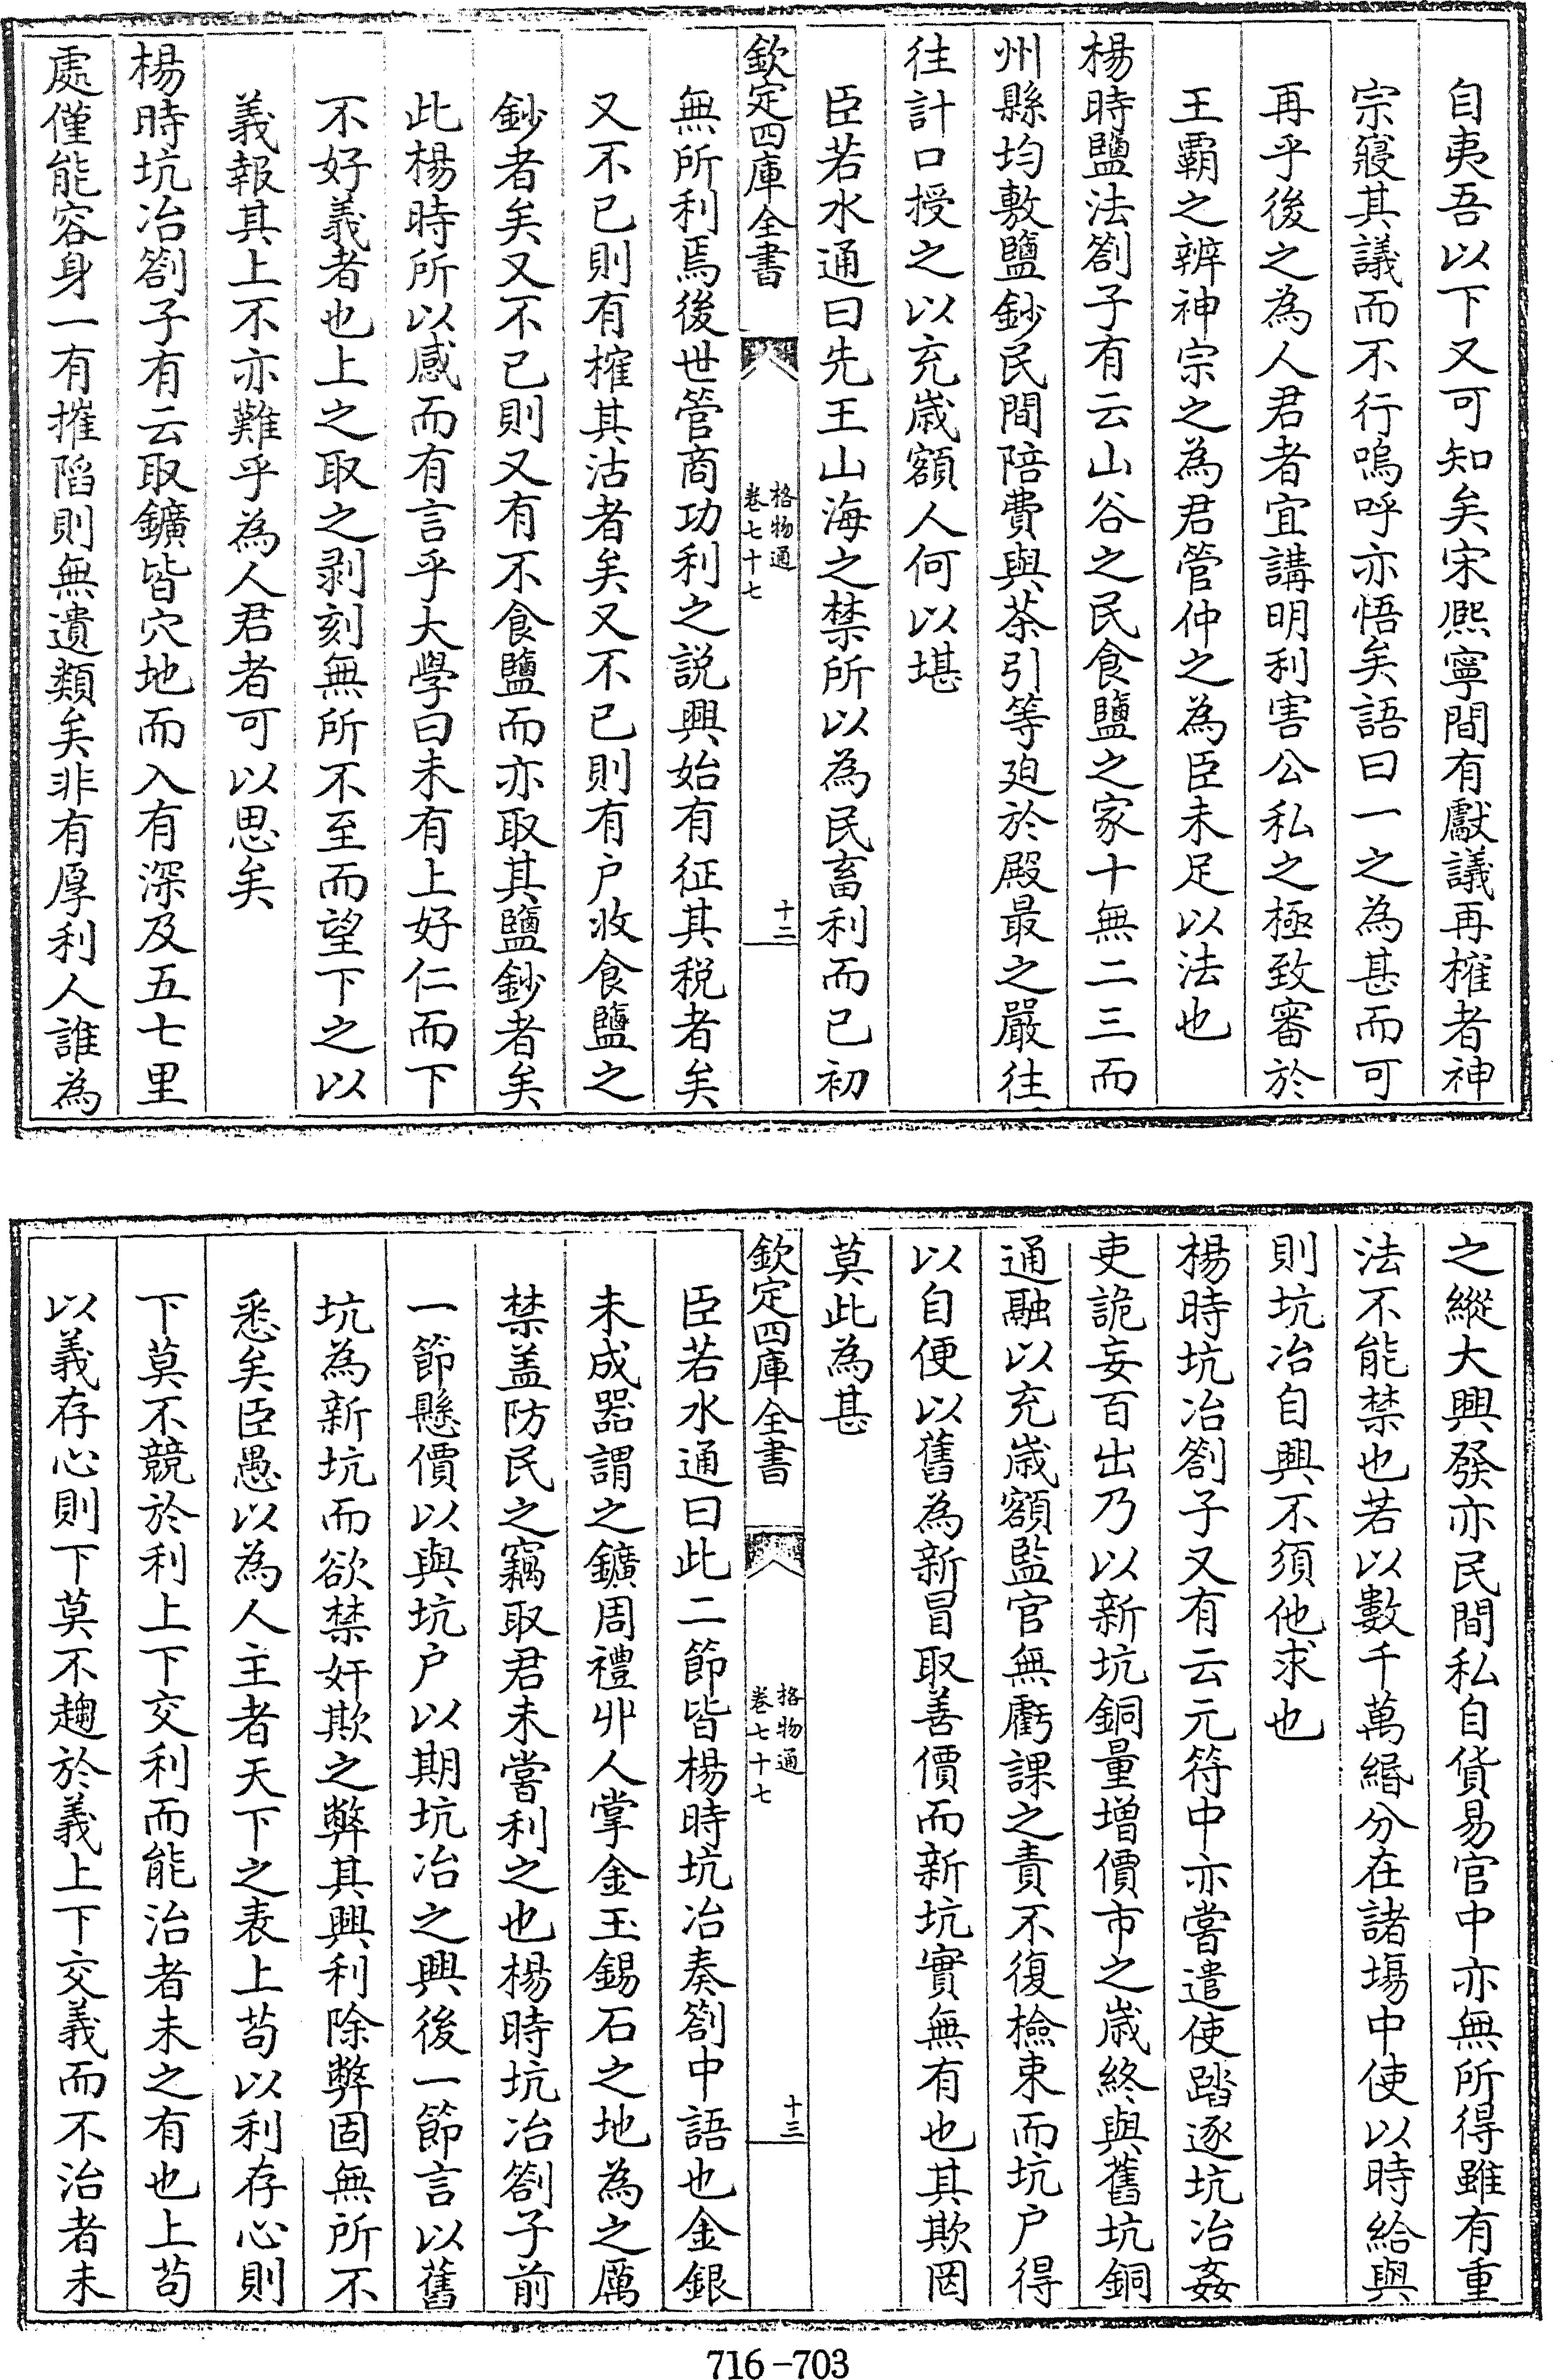 自夷吾以下又可知矣宋熈寧間有獻議再榷者神
宗寢其議而不行嗚呼亦悟矣語曰一之為甚而可
再乎後之為人君者宜講明利害公私之極致審於
王霸之辨神宗之為君管仲之為臣未足以法也
楊時鹽法劄子有云山谷之民食鹽之家十無二三而
州縣均敷鹽鈔民間陪費與茶引等廹於殿最之嚴往
往計口授之以充歳額人何以堪
臣若水通曰先王山海之禁所以為民畜利而已初
欽定四庫全書
格物通
卷七十七
十二
無所利焉後世管商功利之説興始有征其税者矣
又不已則有榷其沽者矣又不已則有户收食鹽之
鈔者矣又不已則又有不食鹽而亦取其鹽鈔者矣
此楊時所以感而有言乎大學曰未有上好仁而下
不好義者也上之取之剥刻無所不至而望下之以
義報其上不亦難乎為人君者可以思矣
楊時坑冶劄子有云取鑛皆穴地而入有深及五七里
處僅能容身一有摧䧟則無遺類矣非有厚利人誰為
之縱大興發亦民間私自貨易官中亦無所得雖有重
法不能禁也若以數千萬緡分在諸場中使以時給與
則坑冶自興不須他求也
楊時坑冶劄子又有云元符中亦嘗遣使踏逐坑冶姦
吏詭妄百出乃以新坑銅量增價市之歳終與舊坑銅
通融以充歳額監官無虧課之責不復檢束而坑户得
以自便以舊為新冒取善價而新坑實無有也其欺罔
莫此為甚
欽定四庫全書
格物通
卷七十七
十三
臣若水通曰此二節皆楊時坑冶奏劄中語也金銀
未成器謂之鑛周禮丱人掌金玉錫石之地為之厲
禁盖防民之竊取君未嘗利之也楊時坑冶劄子前
一節懸價以與坑户以期坑冶之興後一節言以舊
坑為新坑而欲禁奸欺之弊其興利除弊固無所不
悉矣臣愚以為人主者天下之表上苟以利存心則
下莫不競於利上下交利而能治者未之有也上苟
以義存心則下莫不趨於義上下交義而不治者未
716-703